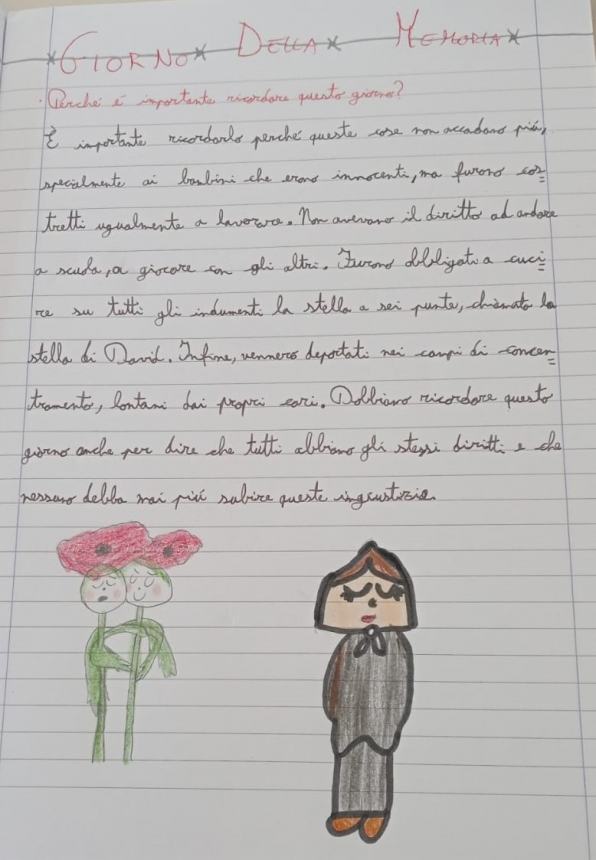 GIORNO DELLA MEMORIA
Perché é importante ricordare questo giorno?
É importante ricordarlo perché queste cose non accadano più,
specialmente ai bambini che erano innocenti, ma furono cos=
tretti ugualmente a lavorare. Non avevano il diritto ad andare
a scuola, a giocare con gli altri. Furono obbligati a cuci=
re su tutti gli indumenti la stella a sei punte, chiamata la
stella di David. Infine, vennero deportati nei campi di concen=
tramento, lontani dai propri cari. Dobbiamo ricordare questo
giorno anche per dire che tutti abbiamo gli stessi diritti e che
nessuno debba mai più subire queste ingiustizie.